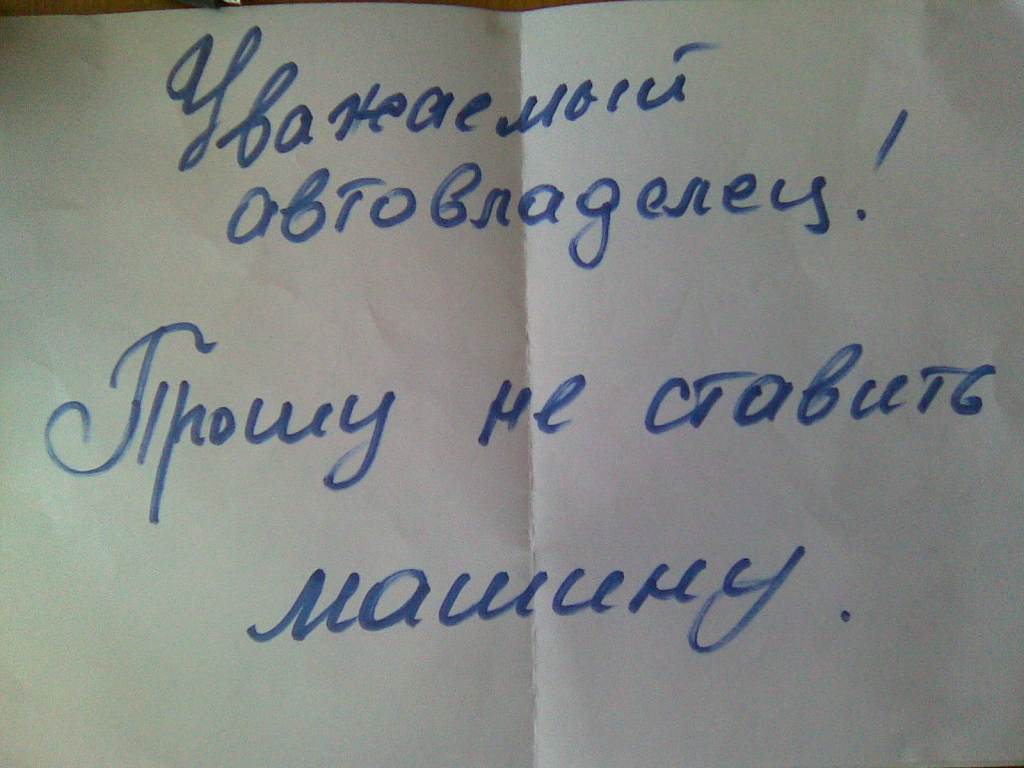 Уважаемый
автовладелец!
Прошу не ставить
машину.